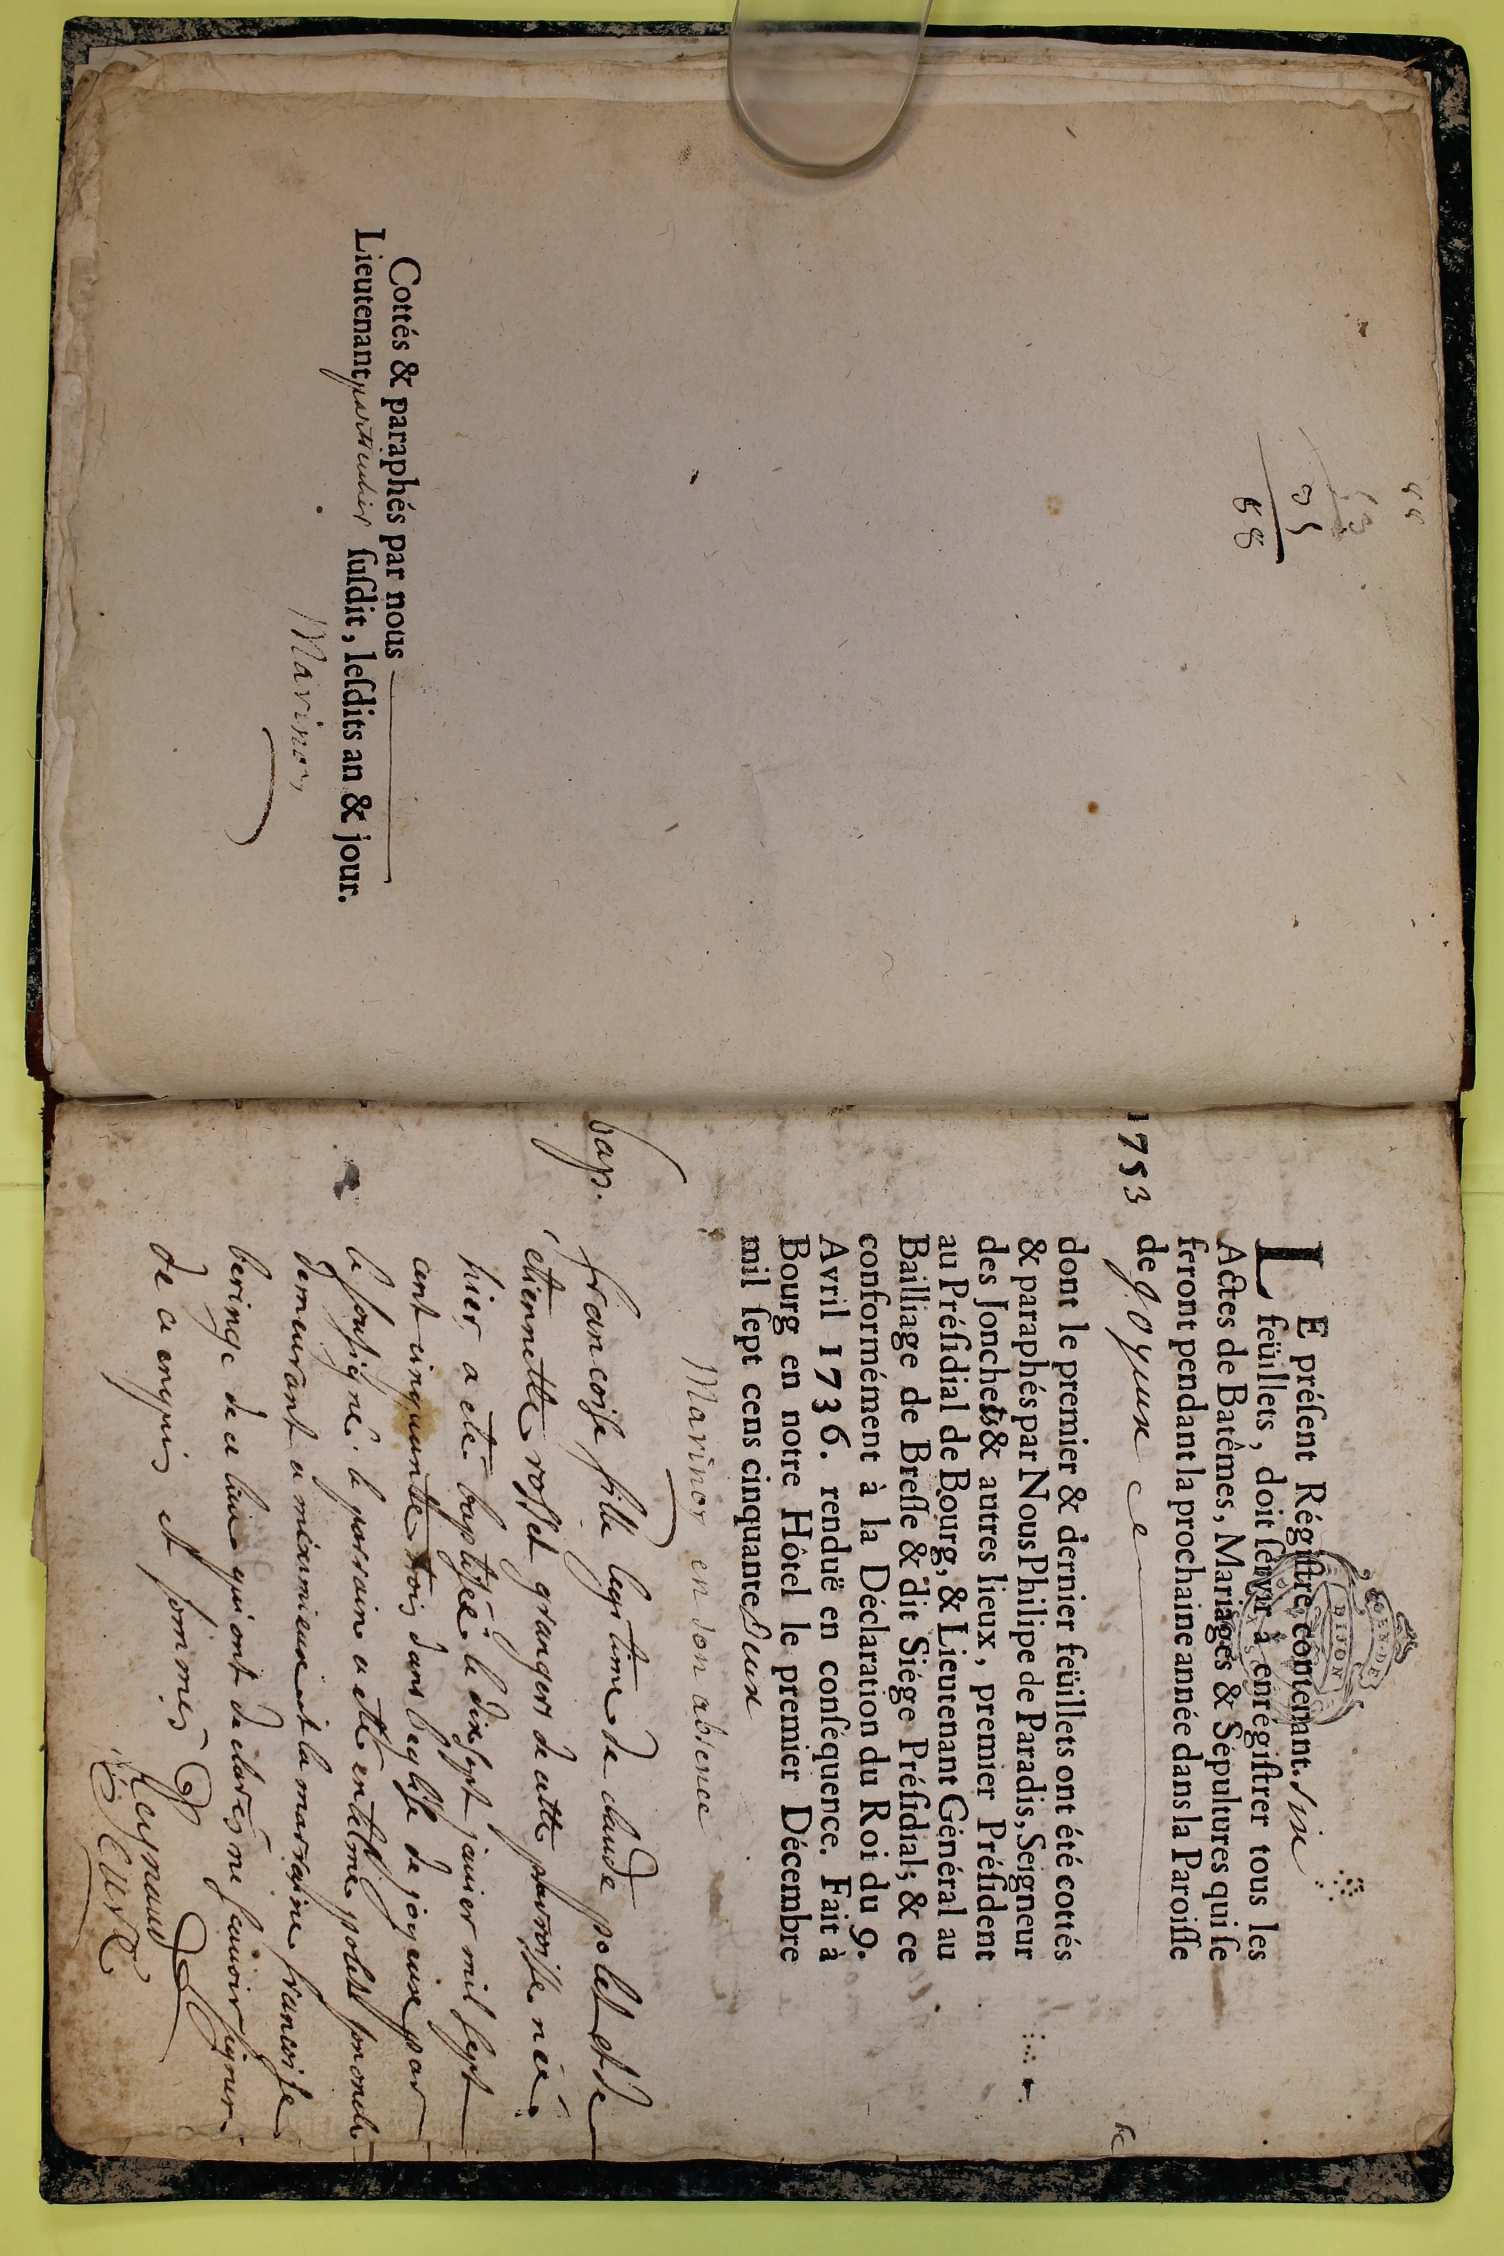 88
53
35
88
Cottés & paraphés par nous
Lieutenant particulier ſuſdit, leſdits an & jour.
Marinon
GEN. DE
DIJON
LE préſent Régiſtre, contenant ſix
feüillets, doit ſervir à enrégiſtrer tous les
Actes de Batêmes, Mariages & Sépultures qui ſe
feront pendant la prochaine année dans la Paroiſſe
1753 de Joyeux ce
dont le premier & dernier feüillets ont été cottés
& paraphés par Nous Philipe de Paradis, Seigneur
des Jonchets & autres lieux, premier Préſident
au Préſidial de Bourg, & Lieutenant Général au
Bailliage de Breſſe & dit Siége Préſidial; & ce
conformément à la Déclaration du Roi du 9.
Avril 1736. renduë en conſéquence. Fait à
Bourg en notre Hôtel le premier Décembre
mil ſept cens cinquante Deux
Marinon en son absence
bap. francoise fille legitime de claude polet et de
ettiennette rosset grangers de cette parroisse née
hier a eté baptisée le dix sept janvier mil sept
cent cinquante trois dans l'eglise de joyeux par
le soussigné. le parrain a etté entelme polet son oncle
demeurant a meximieux et la marraine francoise
beringe de ce lieu qui ont declaré ne scavoir signer
de ce enquis et sommés
Reynaud
Curé